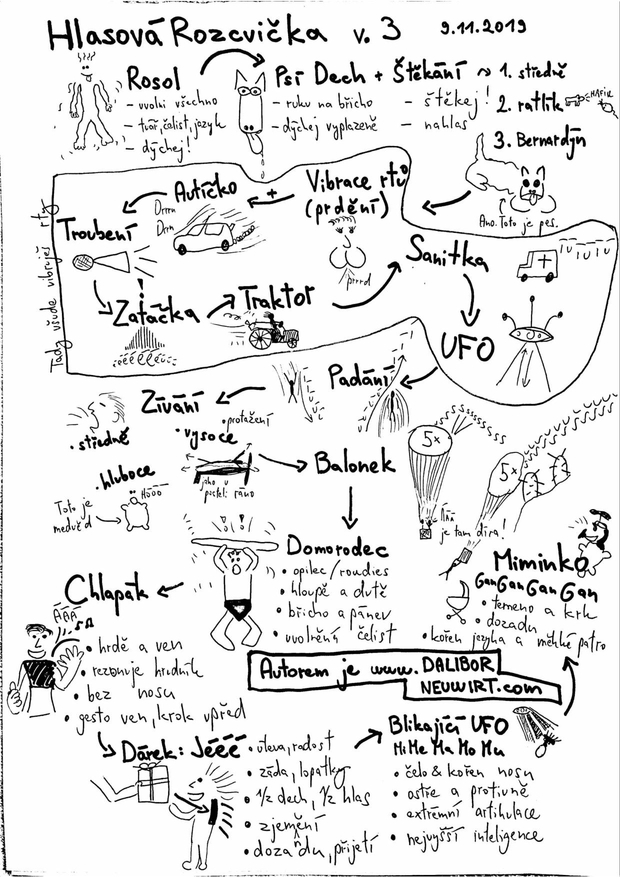 Hlasová Rozcvička v. 3 9.11.2019
Rosol
– uvolni všechno
– tvář, čelist, jazyk
– dýchej!
Psí Dech + Štěkání
– ruku na břicho
– dýchej vyplazeně
– štěkej!
– nahlas
1. středně
2. ratlík
HAFIR
3. Bernardýn
Ano. Toto je pes.
Tady všude vibruješ rty
Vibrace rtů
(prdění)
prrrd
+
Autíčko
Drrrn
Drrn
Troubení
Zatáčka
!
Traktor
Sanitka
IU IU IU
UFO
Padání
Zívání
• středně
• vysoce
• protažení
jako v
posteli ráno
• hluboce
Hôôô
Toto je
medvěd
Balonek
5x
5x
Ááá
je tam díra!
Domorodec
• opilec/roudies
• hloupě a dutě
• břicho a pánev
• uvolněná čelist
Chlapák
ÁBÁ
• hrdě a ven
• rezonuje hrudník
• bez nosu
• gesto ven, krok vpřed
Dárek: Jééé
• úleva, radost
• záda, lopatky
• 1/2 dech, 1/2 hlas
• zjemnění
• dozadu, přijetí
Blikající UFO
Mi Me Ma Mo Mu
• čelo & kořen nosu
• ostře a protivně
• extrémní artikulace
• nejvyšší inteligence
Miminko
Gan Gan Gan Gan
• temeno a krk
• dozadu
• kořen jazyka a měkké patro
Autorem je www. DALIBOR
NEUWIRT.com